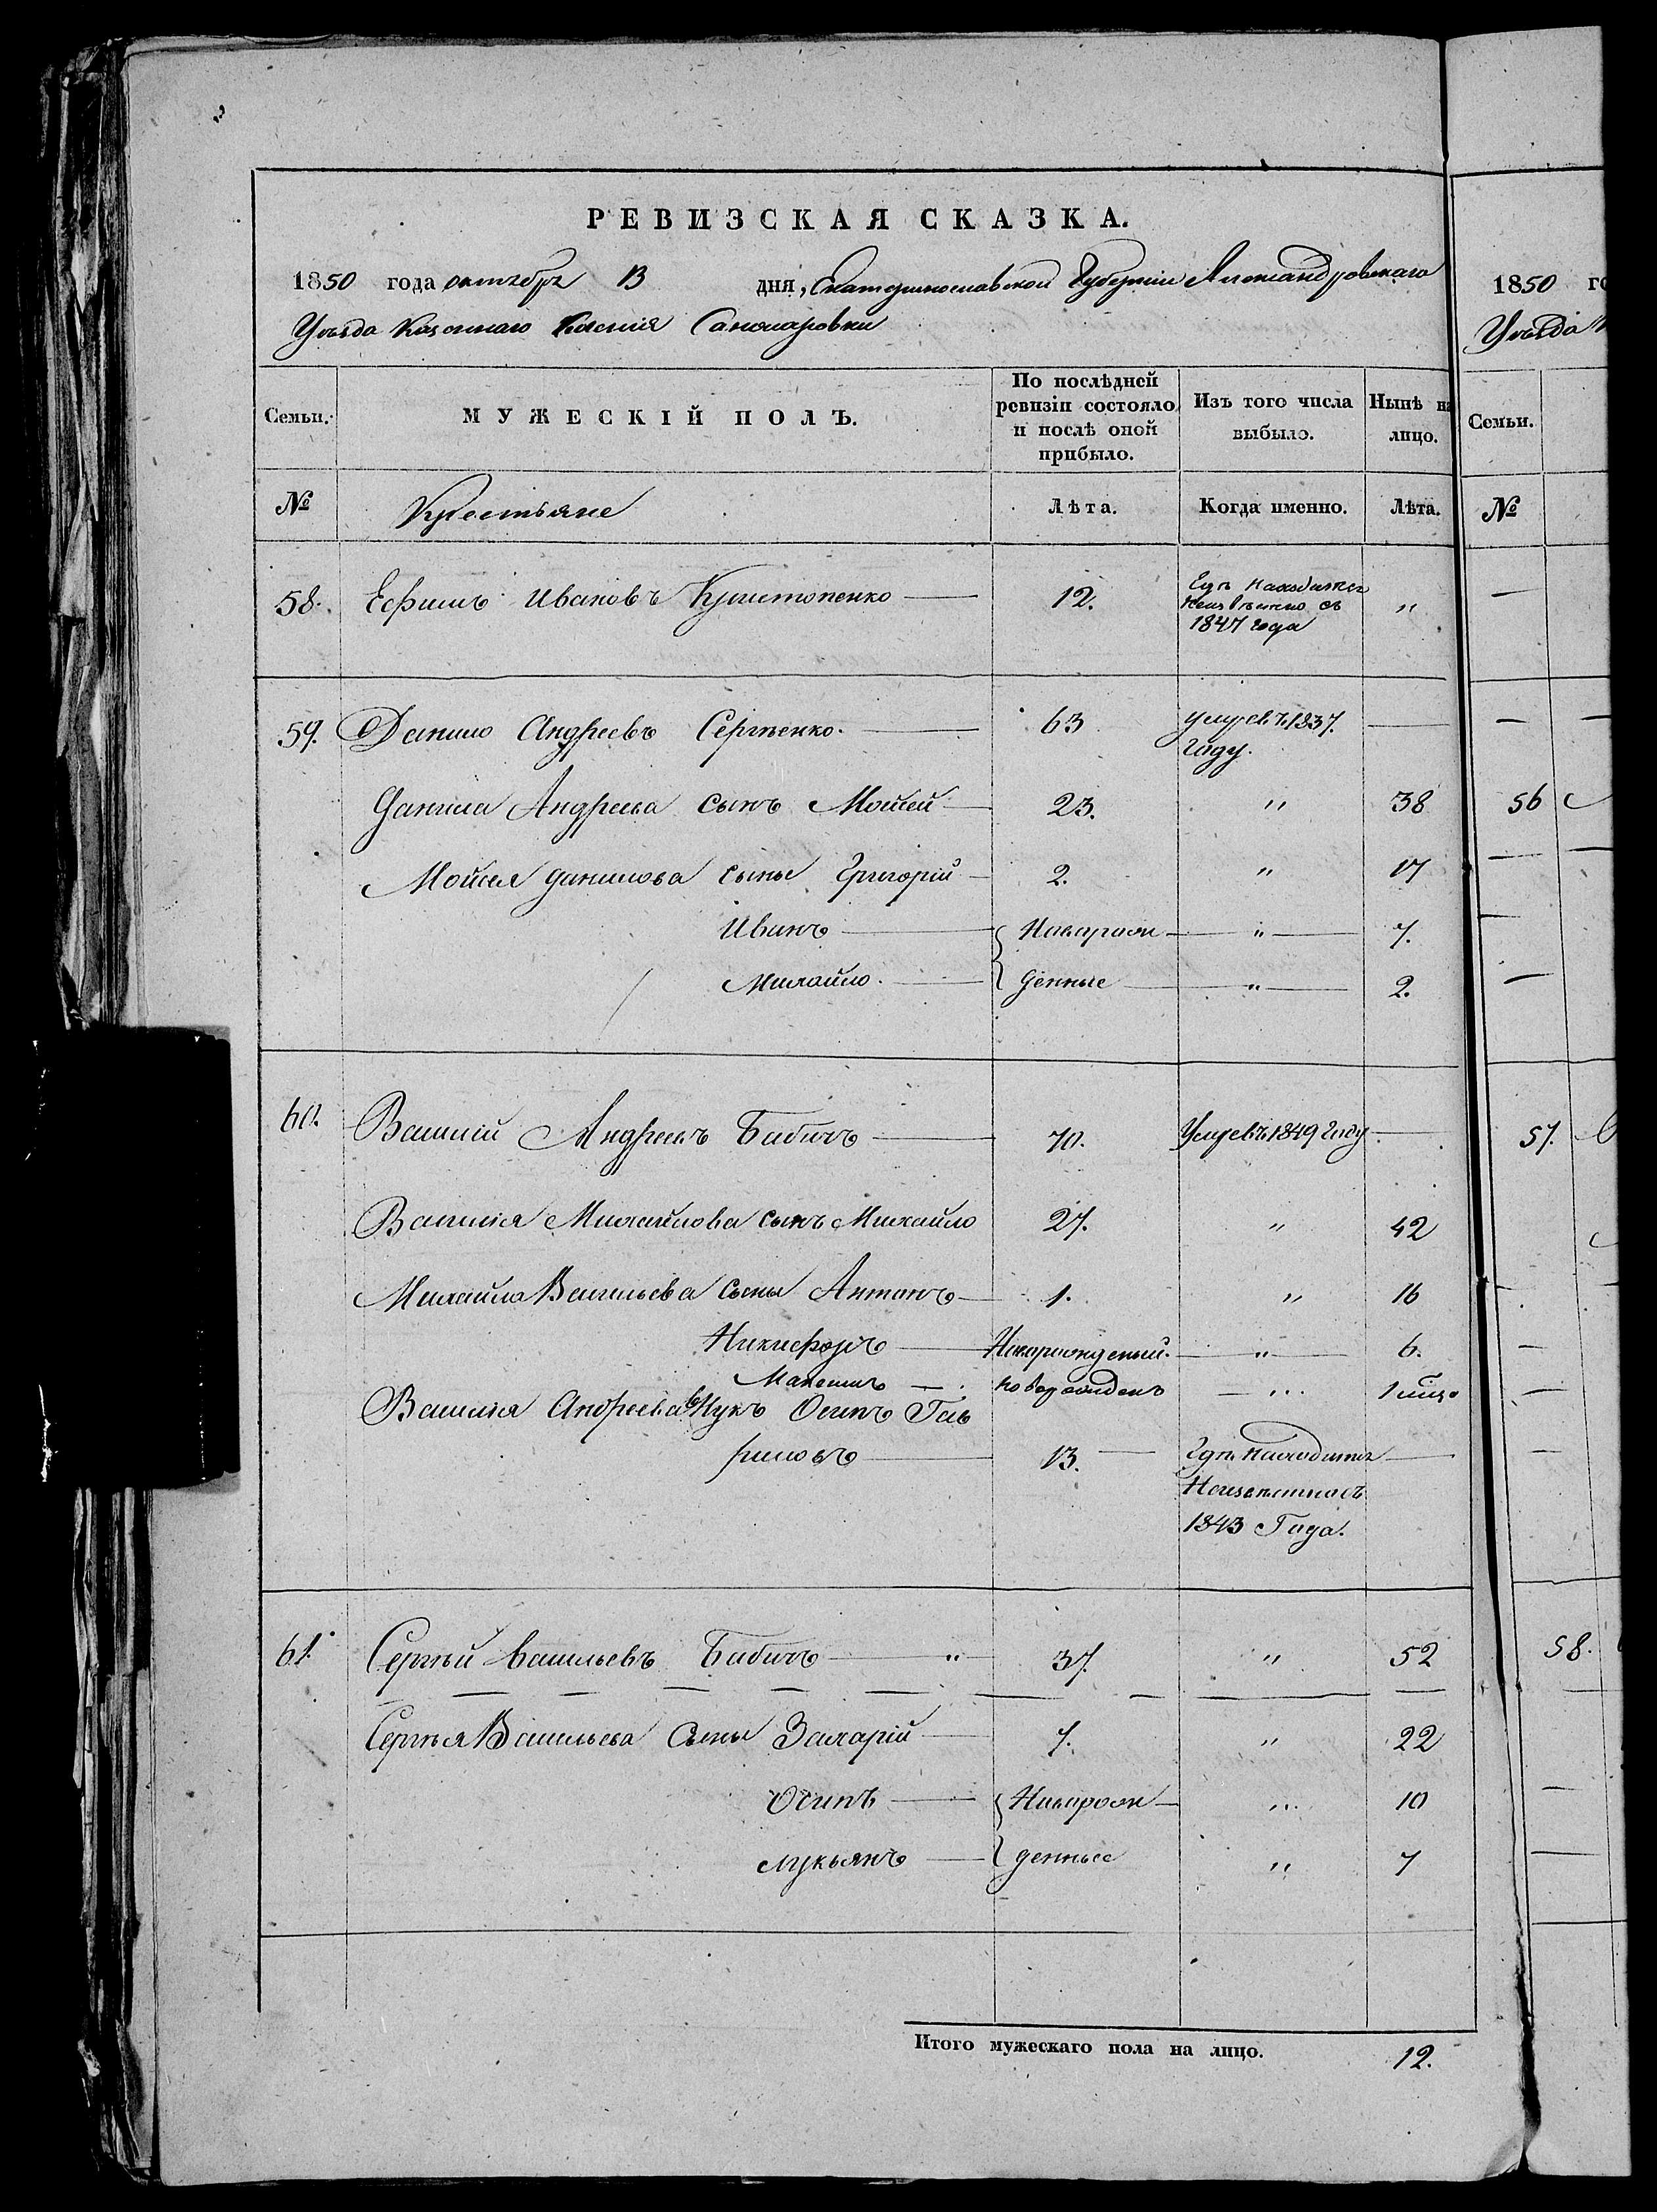 РЕВИЗСКАЯ СКАЗКА.
1850 года октября 13 дня, Екатеринославской Губернии Александровскаго
Уѣзда Казеннаго Селенія
Семьи. МУЖЕСКІЙ ПОЛЪ. По послѣдней ревизіи состояло и послѣ оной прибыло. Изъ того числа выбыло. Нынѣ на лицо.
№ Крестьяне Лѣта. Когда именно. Лѣта.
58. Ефимъ Ивановъ 12. Гдѣ находится неизвѣстно съ 1847 года "
59. Данило Андреевъ Сергѣенко. 63 умре въ 1837. Году.
Данила Андреева сынъ Мойсей 23. " 38
Мойсея данилова сыны Григорій 2. " 17
Иванъ Новарож " 7.
Михайло. денные " 2.
60. Василій Андреевъ Бабичъ 70. Умре въ 1849 Году
Василія Михайлова сынъ Михайло 27. " 42
Михайла Васильева сыны Антонъ 1. " 16
Никифоръ Новорожденый. " 6.
Максимъ новорожденъ " 1
Василія Андреева внукъ Осипъ Гав
риловъ 13. Гдѣ находится
Неизвѣстно съ
1843 Года.
61. Сергѣй Васильевъ Бабичъ " 37. " 52
Сергѣя Васильева Сыны Захарій 7. " 22
Осипъ Новорож " 10
Лукьянъ денные " 7
Итого мужескаго пола на лицо. 12.
1850 го
Уѣзда
Семьи.
№
56
57.
58.